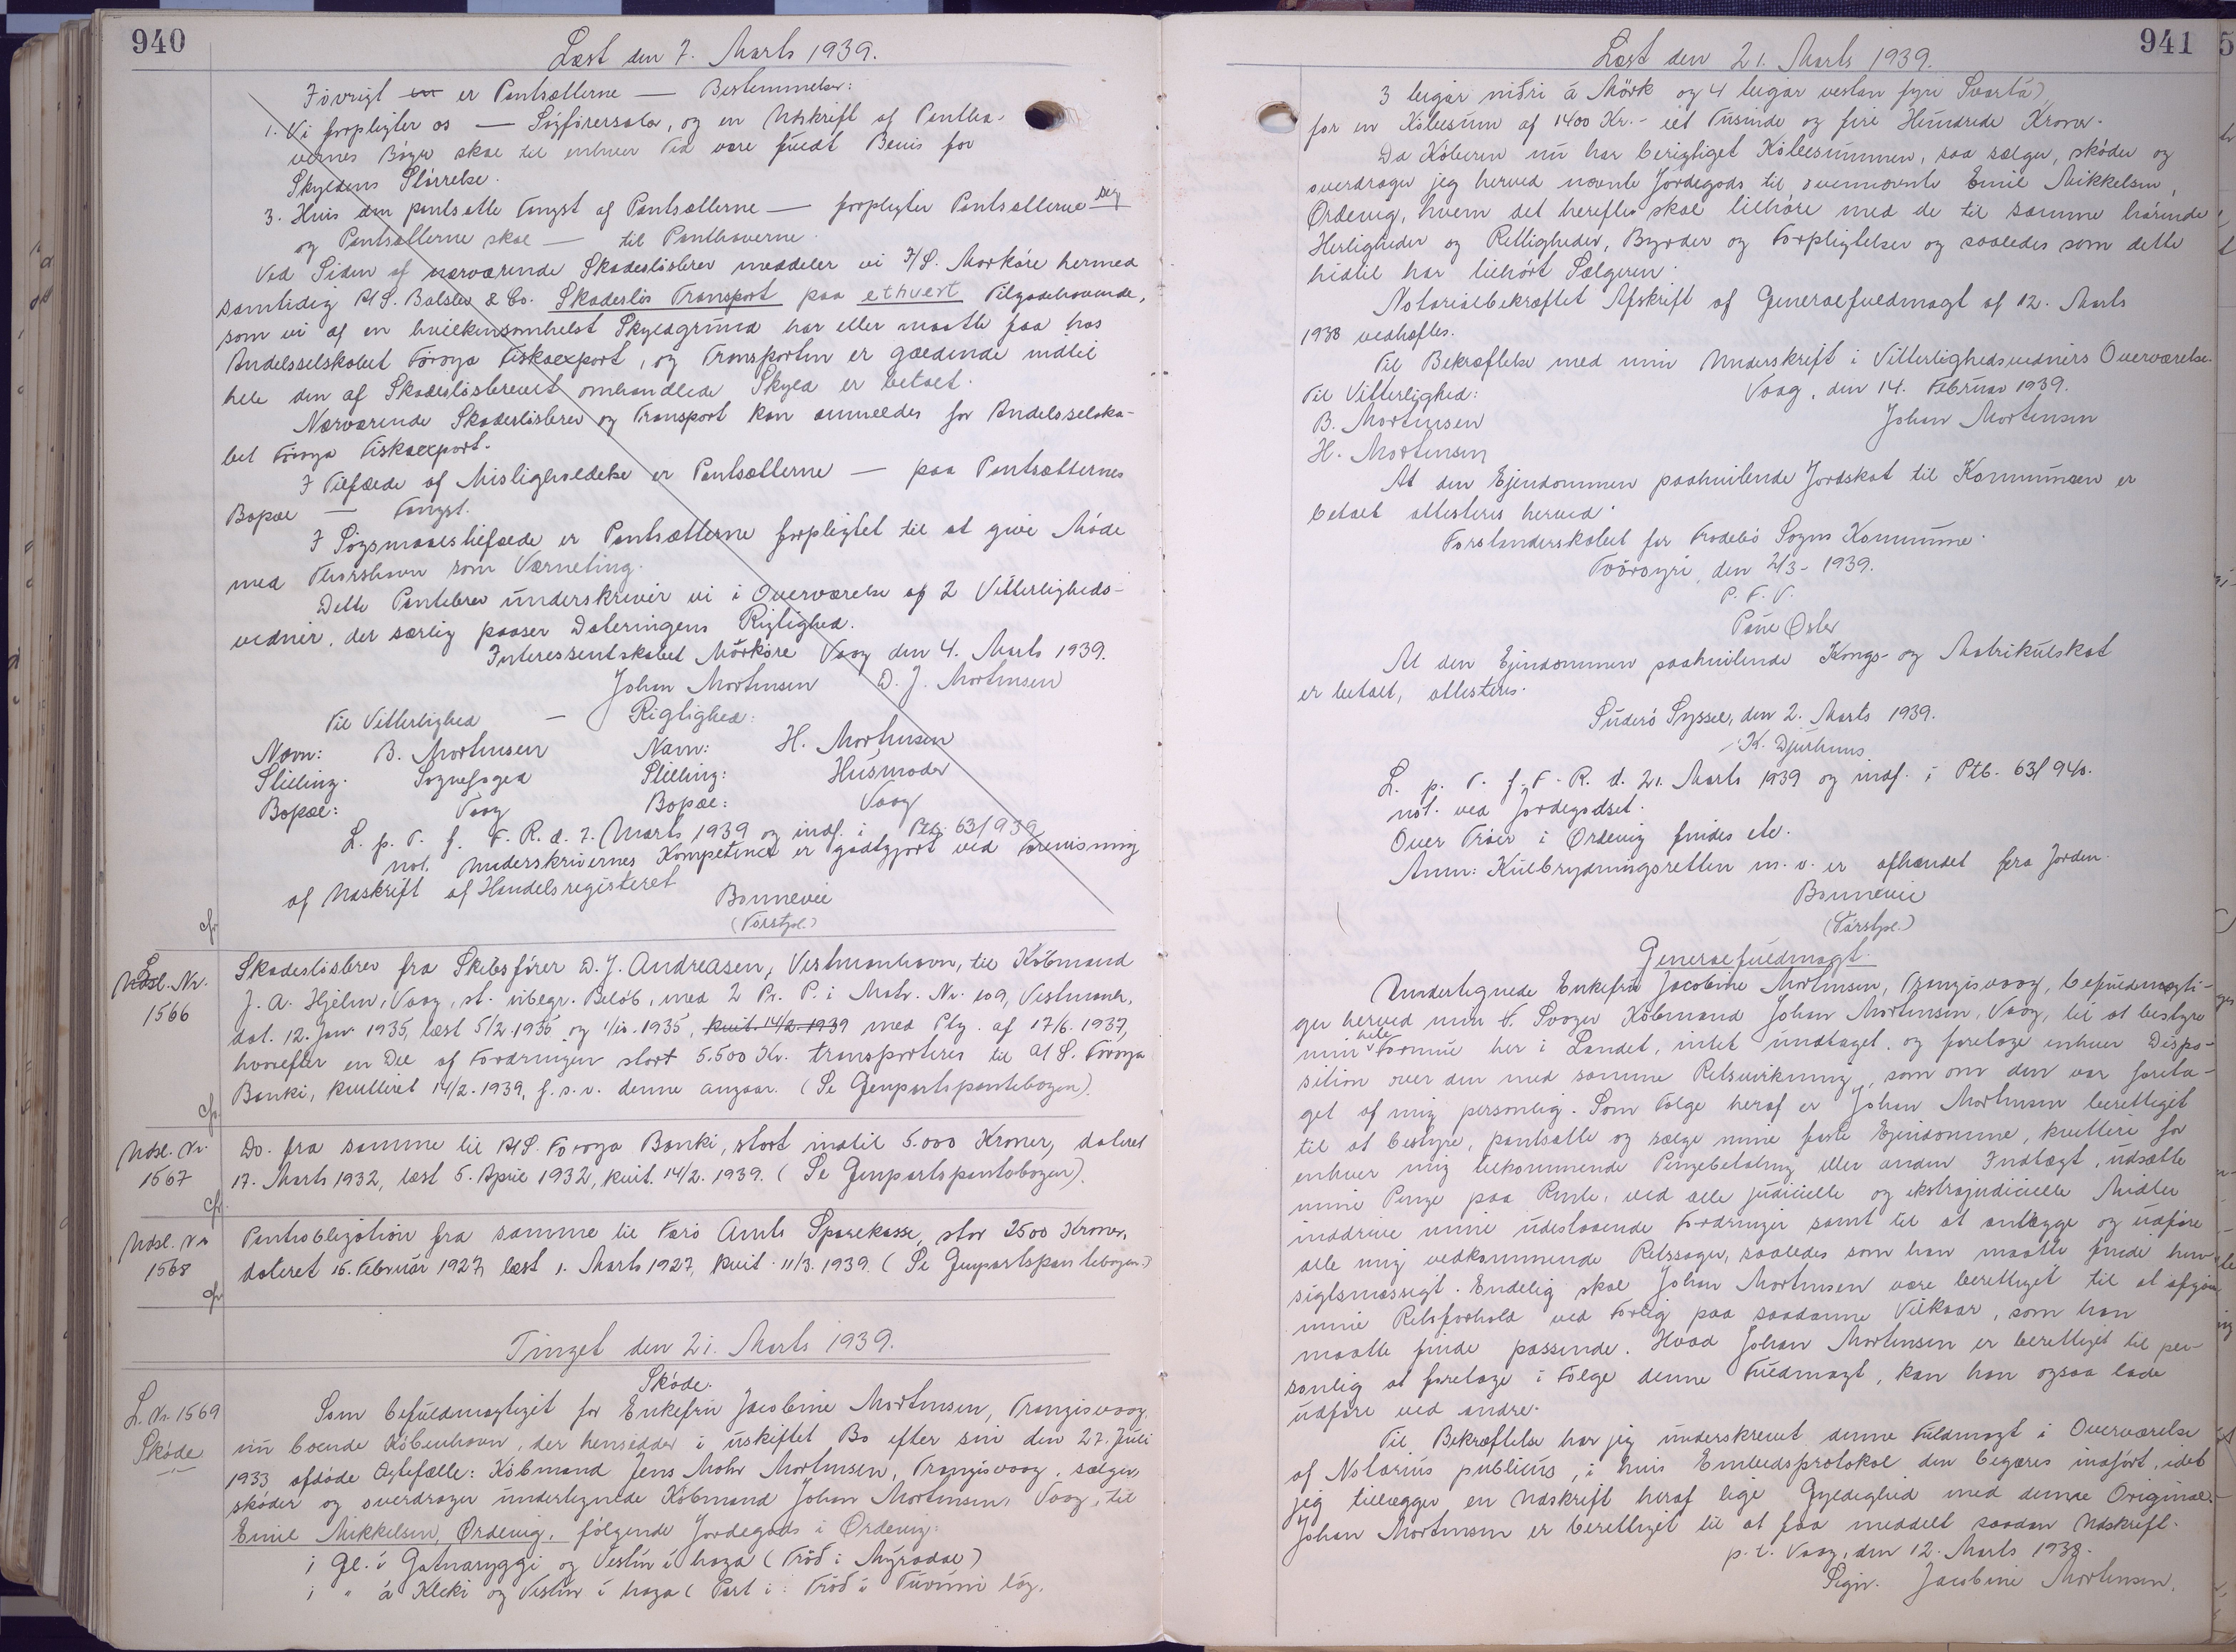 940
Læst den 7. Marts 1939.
Iövrigt er Pantsætterne — Bestemmelser:
1. Vi forpligter os — Sagförersalær, og en Udskrift af Pantha-
vernes Böger skal til enhver Tid være fuldt Bevis for
Skyldens Störrelse.
3. Hvis den pantsatte Fangst af Pantsætterne — forpligter Pantsætterne sig
og Pantsætterne skal — til Panthaverne.
Ved Siden af nærværende Skadeslösbrev meddeler vi I/S. Morköre hermed
samtidig A/S. Balslev & Co. Skadeslös Transport paa ethvert Tilgodehavende,
som vi af en hvilkensomhelst Skyldgrund har eller maatte faa hos
Andelsselskabet Föroya Fiskaexport, og Transporten er gældende indtil
hele den af Skadeslösbrevet omhandlede Skyld er betalt.
Nærværende Skadeslösbrev og Transport kan anmeldes for Andelsselska-
bet Föroya Fiskaexport.
I Tilfælde af Misligholdelse er Pantsætterne — paa Pantsætternes
Bopæl — Fangst.
I Sögsmaalstilfælde er Pantsætterne forpligtet til at give Möde
med Thorshavn som Værneting.
Dette Pantebrev underskriver vi i Overværelse af 2 Vitterligheds-
vidner, der særlig paaser Dateringens Rigtighed.
Interessentskabet Mörköre Vaag den 4. Marts 1939.
Johan Mortensen D. J. Mortensen
Til Vitterlighed — Rigtighed:
Navn: B. Mortensen Navn: H. Mortensen
Stilling: Sognefoged Stilling: Husmoder
Bopæl: Vaag Bopæl: Vaag
L. p. T. f. F. R. d. 7. Marts 1939 og indf. i Ptb. 63/939
not. Underskrivernes Kompetence er godtgjort ved Forevisning
af Udskrift af Handelsregisteret
Bonnevie
(Forstpl.)
cfr
L. Nr.
1566
Skadeslösbrev fra Skibsförer D. J. Andreasen, Vestmanhavn, til Köbmand
J. A. Hjelm, Vaag, st. ubegr. Belöb, med 2 Pr. P. i Matr. Nr. 109, Vestmanh.,
dat. 12. Jan. 1935, læst 5/2.1935 og 1/10.1935, kvit. 14/2.1939 med Ptg. af 17/6.1937,
hvorefter en Del af Fordringen stort 5.500 Kr. transporteres til A/S. Föroya
Banki, kvitteret 14/2.1939, f. s. v. denne angaar. (Se Genpartspantebogen).
cfr.
Udsl. Nr.
1567
Do. fra samme til A/S. Föroya Banki, stort indtil 5.000 Kroner, dateret
17. Marts 1932, læst 5. April 1932, kvit. 14/2. 1939. (Se Genpartspantebogen).
cfr.
Udsl. Nr.
1568
Pantobligation fra samme til Færö Amts Sparekasse, stor 2500 Kroner,
dateret 15. Februar 1927, læst 1. Marts 1927, kvit. 11/3. 1939. (Se Genpartspantebogen.)
cfr.
Tinget den 21. Marts 1939.
L. Nr. 1569
Sköde
Sköde.
Som befuldmægtiget for Enkefru Jacobine Mortensen, Trangisvaag,
nu boende København, der hensidder i uskiftet Bo efter sin den 27. Juli
1933 afdöde Ægtefælle: Köbmand Jens Mohr Mortensen, Trangisvaag, sælger,
sköder og overdrager undertegnede Köbmand Johan Mortensen, Vaag, til
Emil Mikkelsen, Ördevig, fölgende Jordegods i Ördevig:
1 Gl. í Gatnaryggi og Vestur í haga (Tröð í Mýrodal)
1 " á Kleki og Vestur í haga (Part í Tröð í Túvuni lág,
941
Læst den 21. Marts 1939.
3 leigur niðri á Mörk og 4 leigur vestan fyri Svartá),
for en Köbesum af 1400 Kr.- eet Tusinde og fire Hundrede Kroner.
Da Köberen nu har berigtiget Köbesummen, saa sælger, sköder og
overdrager jeg herved nævnte Jordegods til ovennævnte Emil Mikkelsen,
Ördevig, hvem det herefter skal tilhöre med de til samme hörende
Herligheder og Rettigheder, Byrder og Forpligtelser og saaledes som dette
hidtil har tilhört Sælgeren.
Notarialbekræftet Afskrift af Generalfuldmagt af 12. Marts
1938 vedhæftes.
Til Bekræftelse med min Underskrift i Vitterlighedsvidners Overværelse.
Til Vitterlighed: Vaag, den 14. Februar 1939.
B. Mortensen Johan Mortensen
H. Mortensen
At den Ejendommen paahvilende Jordskat til Kommunen er
betalt attesteres herved.
Forstanderskabet for Frodebö Sogns Kommune.
Tvöroyri, den 2/3- 1939.
P. F. V.
Öster
At den Ejendommen paahvilende Kongs- og Matrikulskat
er betalt, attesteres.
Suderö Syssel, den 2. Marts 1939.
K. Djurhuus
L. p. T. f. F. R. d. 21. Marts 1939 og indf. i Ptb. 63/940.
not. ved Jordegodset.
Over Tröer i Ördevig findes etc.
Anm: Kulbrydningsretten m. v. er afhændet fra Jorden.
Bonnevie
(Forstpl.)
Generalfuldmagt.
Undertegnede Enkefru Jacobine Mortensen, Trangisvaag, befuldmægti-
ger herved min Svoger Köbmand Johan Mortensen, Vaag, til at bestyre
min hele Formue her i Landet, intet undtaget, og foretage enhver Dispo-
sition over den med samme Retsvirkning, som om den var foreta-
get af mig personlig. Som Fölge heraf er Johan Mortensen berettiget
til at bestyre, pantsætte og sælge mine faste Ejendomme, kvittere for
enhver mig tilkommende Pengebetaling eller anden Indtægt, udsætte
mine Penge paa Rente, ved alle judicielle og ekstrajudicielle Midler
inddrive mine udestaaende Fordringer samt til at anlægge og udföre
alle mig vedkommende Retssager, saaledes som han maatte finde hen-
sigtsmæssigt. Endelig skal Johan Mortensen være berettiget til at afgöre
mine Retsforhold ved Forlig paa saadanne Vilkaar, som han
maatte finde passende. Hvad Johan Mortensen er berettiget til per-
sonlig at foretage i Fölge denne Fuldmagt, kan han ogsaa lade
udföre ved andre.
Til Bekræftelse har jeg underskrevet denne Fuldmagt i Overværelse
af Notarius publicus, i hvis Embedsprotokol den begæres indfört, idet
jeg tillægger en Udskrift heraf lige Gyldighed med denne Original.
Johan Mortensen er berettiget til at faa meddelt saadan Udskrift.
p. t. Vaag, den 12. Marts 1938.
Sign. Jacobine Mortensen.